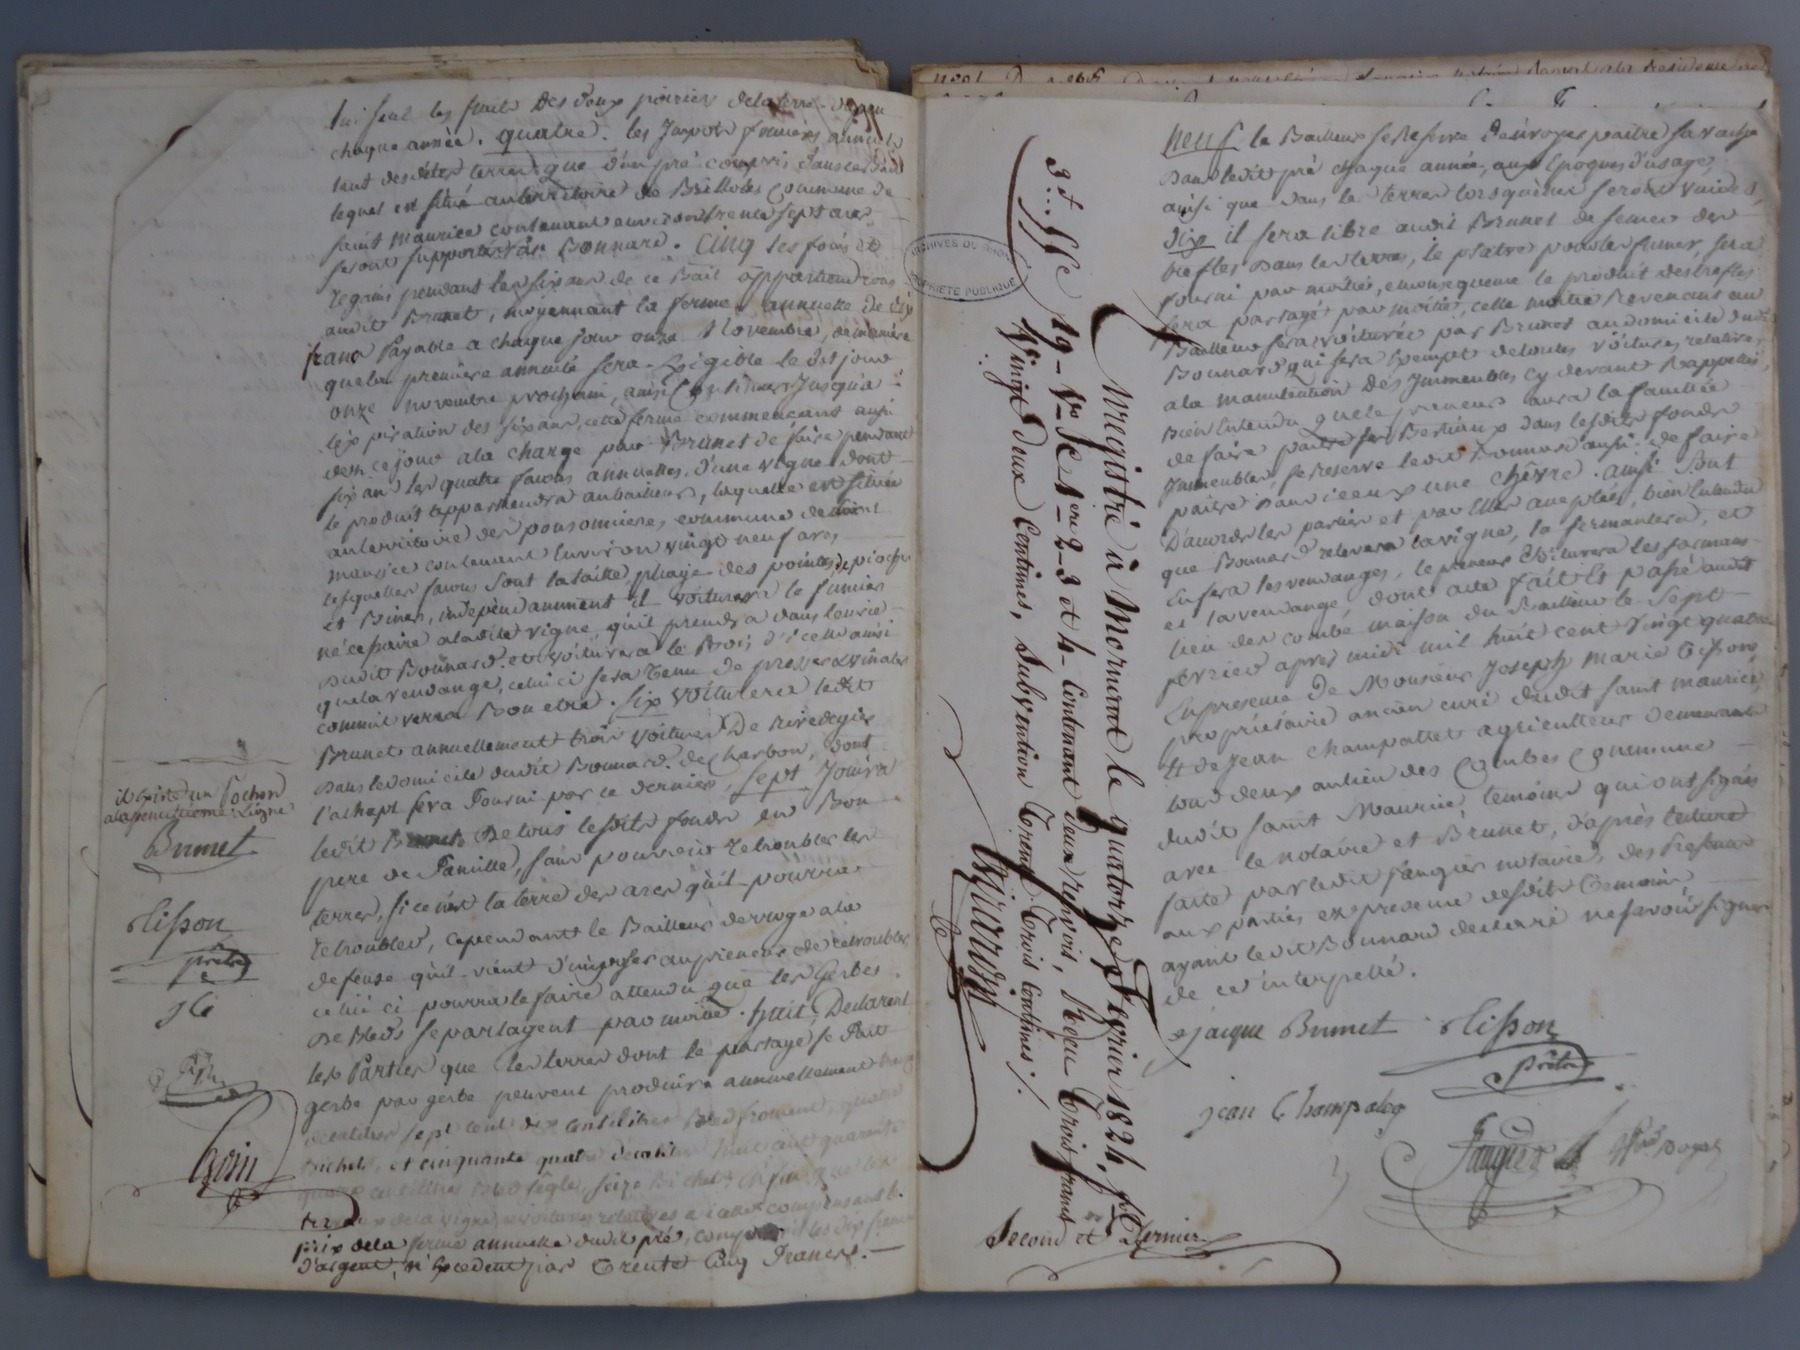 lui seul les fruits des deux poiriers delaterre
chaque année. quatre. les Impots fonciers annuels
tant desdites terres que d'un pré compris dans
lequel est situé auterritoire de Commune de
saint Maurice contenant environ trente sept ares
seront supportés par Bonnard. Cinq les foins et
regains pendant les six ans de ce Bail appartiendrons
audit Brunet, moyennant la ferme annuelle de dix
francs payable a chaque jour onze Novembre, demanière
quela première annuité sera Exigible le dit jour
onze novembre prochain, ainsi Continuer Jusqu'a
l'expiration des six ans, cette ferme commencant aussi
dem ce jour ala charge par Brunet de faire pendant
six ans les quatre facons annuelles, d'une vigne dont
le produit appartiendra aubailleur, laquelle est située
auterritoire des ponsonnieres, commune de saint
Maurice contenant Environ vingt neuf ares
lesquelles facons sont lataille, pliage des pointes, piocher
et Biner, indépendamment il voiturera le fumier
nécessaire aladite vigne qu'il prendra dans
dudit Bonnard et voiturera le Bois d'icelle ainsi
quela vendange, celui ci sera tenu de presser
comme verra Bon etre. six voiturera ledit
Brunet annuellement trois voitures De rivedegier
dans ledomicile dudit Bonnard de charbon, dont
l'achapt sera fourni par ce dernier, sept Jouira
ledit Brunet de tous lesdits fonds en Bon
pere de Famille, sans pouvoir retroubler les
terres, si ce n'est la terre des ares qu'il pourra
retroubler, cependant le Bailleur derroge ala
defense qu'il vient d'imposer aupreneur de retroubler
celui ci pourra le faire attendu que les Gerbes
De Bleds separtagent par moitié. huit, Declarent
les Parties que les terres dont le partage se fait
gerbe par gerbe peuvent produire annuellement
décalitres sept cent dix centilitres Bled froment, quatre
bichets, et cinquante quatre décalitres huit cent quarante
quatre centilitres Bled seigle, seize Bichets Enfin que les
travaux dela vigne, voitures relatives a icelle compensant le
prix dela ferme annuelle dudit pré, les dix francs
d'argent, n'Excedent pas Trente Cinq Francs.
il Existe un Cochon
alapenultieme Ligne
Brunet
Clisson
prêtre
JC
Goin
neuf le Bailleur se reserve d'envoyer paitre sa vache
dans ledit pré chaque année, aux Epoques d'usage,
ainsi que dans les terres lorsquelles seront vuides,
dix il sera libre audit Brunet de semer des
trefles dans les terres, le platre pour les fumer, sera
fourni par moitié, emonqueme le produit des trefles
sera partagé par moitié, cette moitié Revenant au
Bailleur sera voiturée par Brunet au domicile dudit
Bonnard qui sera Exempt de toutes voitures relatives
ala manutention des Immeubles cy devant Rappellés,
Bien Entendu que le preneur aura la faculté
de faire paitre ses Bestiaux dans lesdits fonds
Immeubles, se reserve ledit Bonnard aussi de faire
paitre dans iceux une chêvre. ainsi sont
D'accord les parties et par Elles acceptées, bien Entendu
que Bonnard relevera lavigne, la sermentera, et
En fera les vendanges, le preneur Voiturera les sarmens
et lavendange, dont acte fait Et passé audit
lieu des combe maison du Bailleur le sept
fevrier apres midi mil huit cent vingt quatre
En presence de Monsieur Joseph Marie Clisson
propriétaire ancien curé dudit saint maurice,
Et de Jean Champallet agriculteur demeurant
tous deux au lieu des Combes Commune
dudit saint Maurice, temoins qui ont signés
avec le notaire et Brunet, d'après lecture
faite par ledit faugier notaire, des Presentes
aux parties en presence desdits temoins,
ayant ledit Bonnard declaré ne savoir signer
de ce interpellé.
jacque Brunet Clisson
prêtre
jean Champaley
Faugier
Second et dernier
Enregistré à Mornant le quatorze Fevrier 1824, f°
19 - V° Sc 1ere 2 - 3 et 4 - Contenant deux renvois, Reçu Trois francs
Vingt Deux Centimes, Subvention Trente Trois Centimes ./.
Girardy
ARCHIVES DU RHONE
PROPRIETE PUBLIQUE